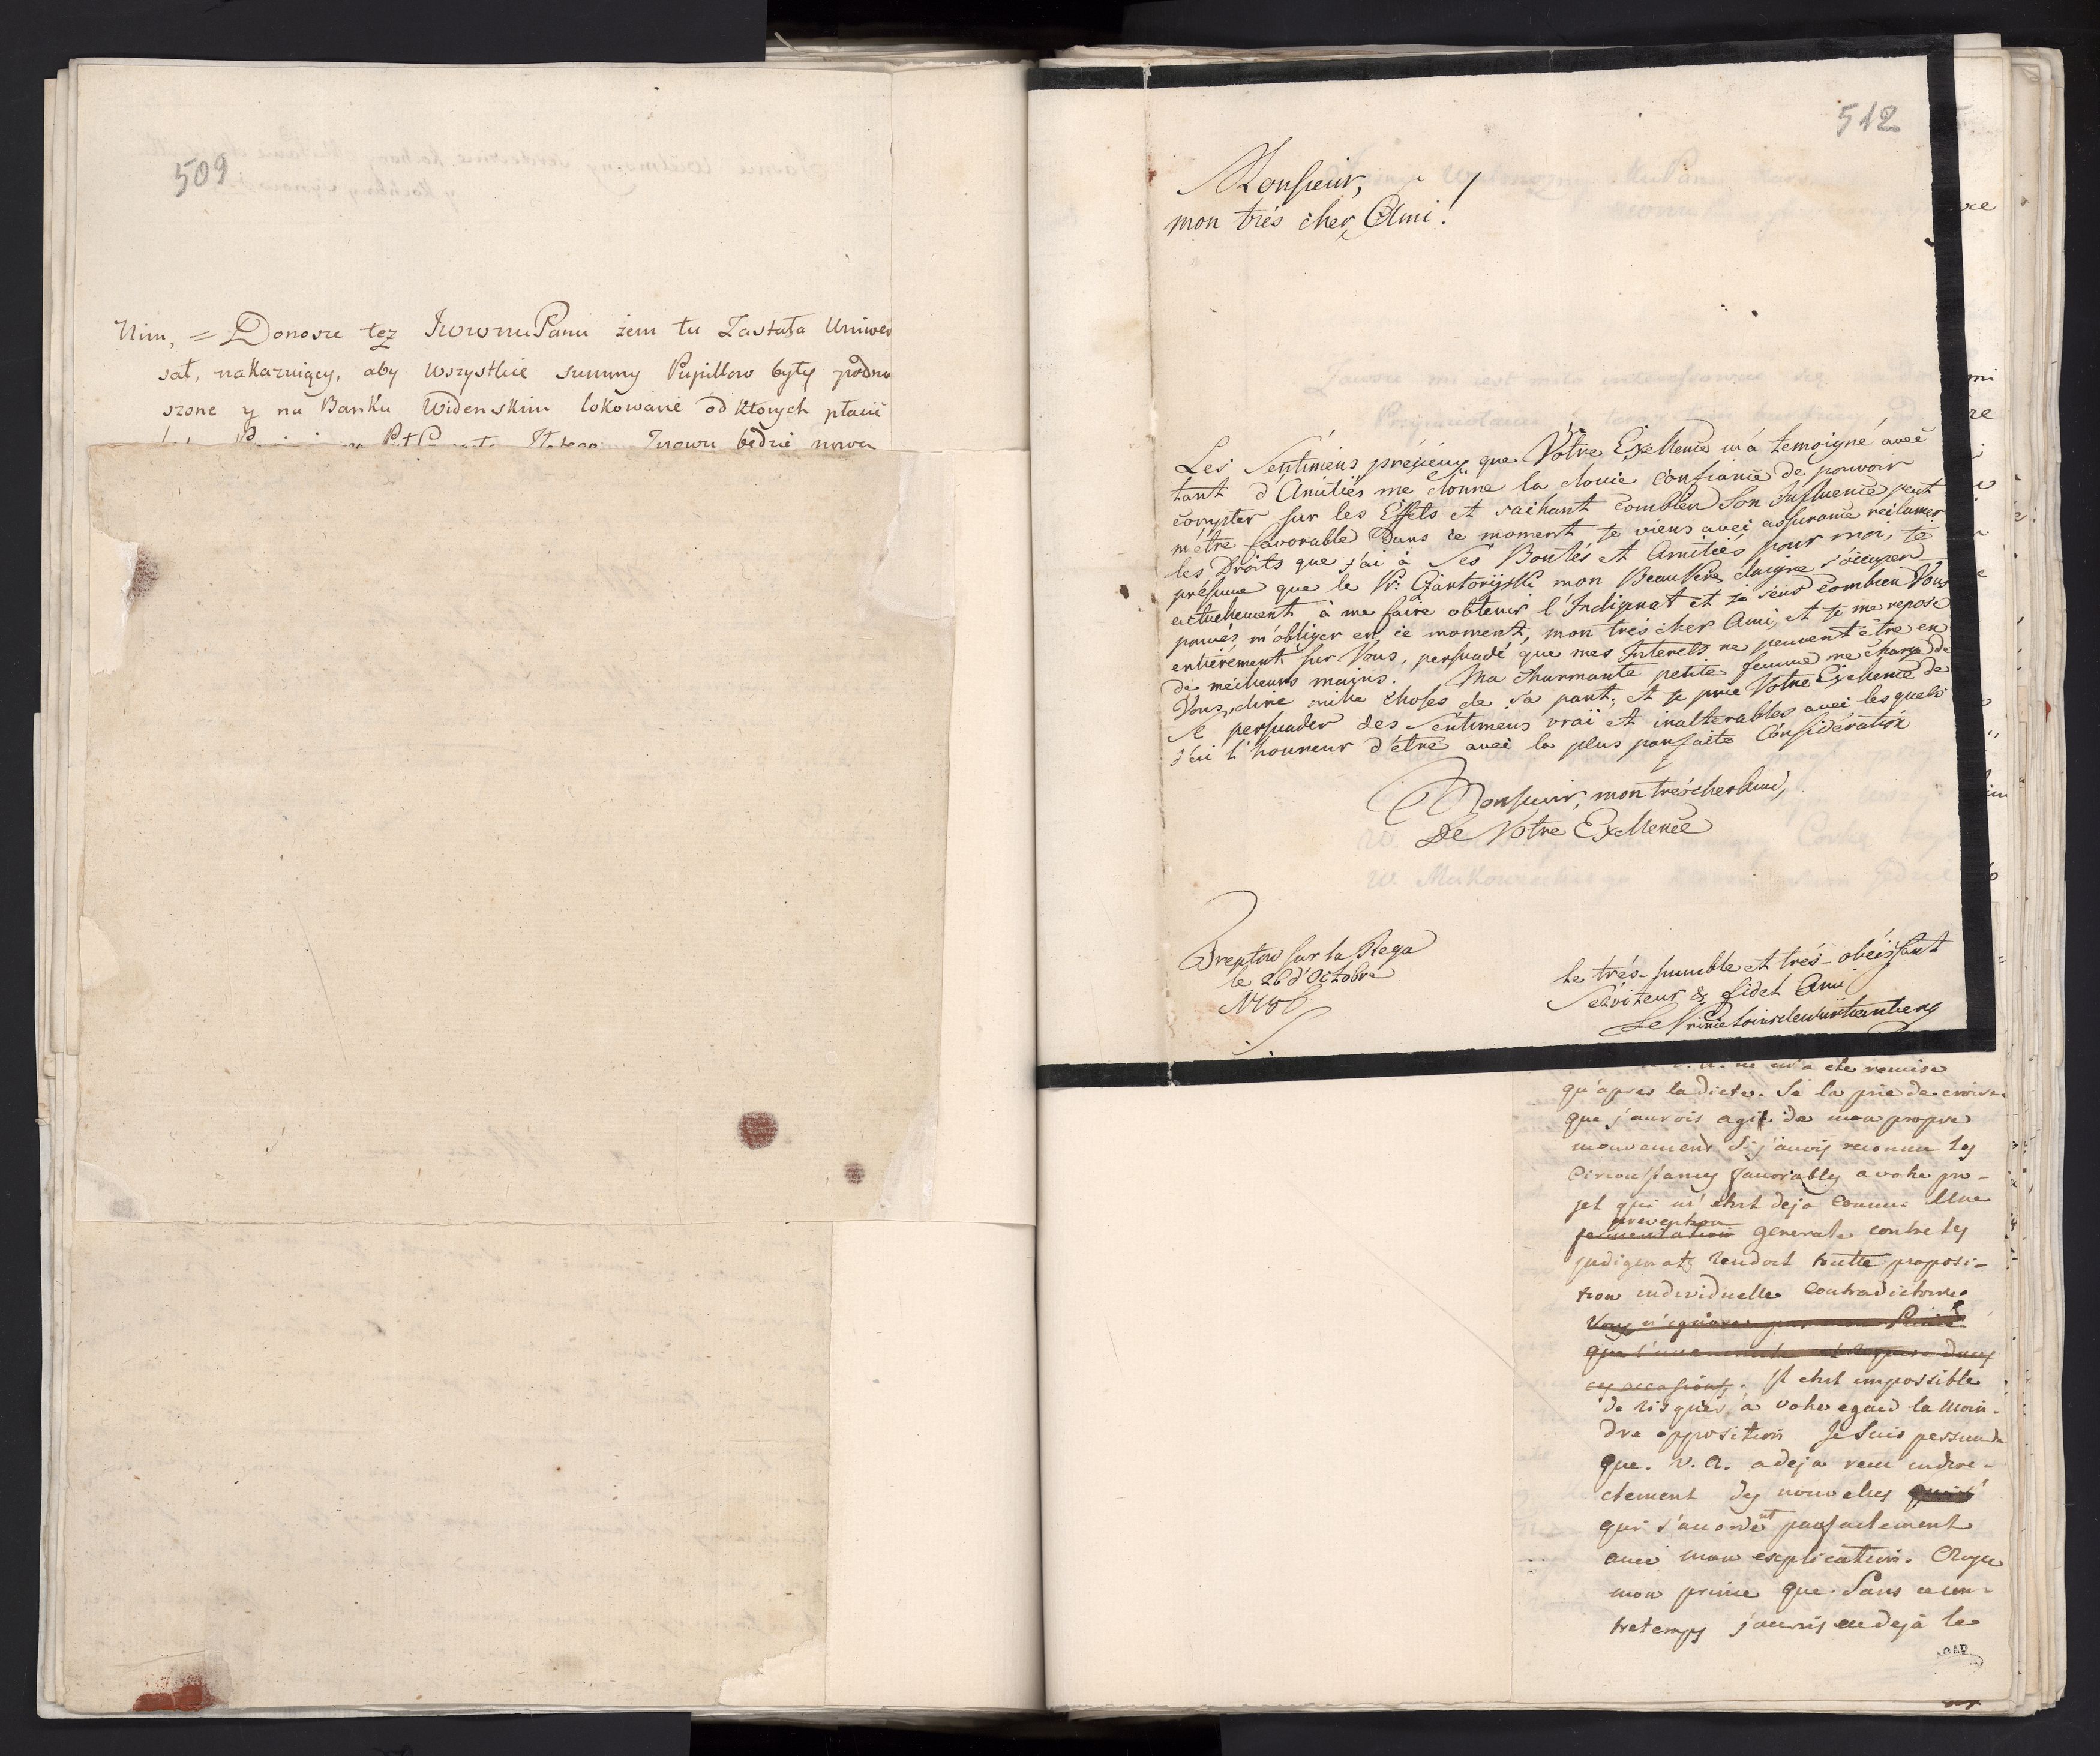 509
Nim, = Donosze też JWWMuPanu żem tu Zastała Uniwer
sał, nakazuiący, aby wszystkie summy Pupillow były podno
szone y na Banku Widenskim lokowane od ktorych płacić
Inowu będzie nowa
512
Monsieur,
mon trés cher Ami!
Les Sentimens prétieux que Vôtre Exellence m'a temoigné avec
tant d'Amitiés me donne la douce confiance de pouvoir
compter sur les Effets et sachant combien Son Influence peut
m'être favorable dans ce moment je viens avec assurance reclamer
les Droits que j'ai à Ses Bontés et Amitiés pour moi, je
présume que le Pr: Czartoryski mon Beau Pere daigne s'occuper
actuellement à me faire obtenir l'Indigenat et je sens combien Vous
pouvés m'obliger en ce moment, mon trés cher Ami, et je me repose
entiérement sur Vous, persuadé que mes Interets ne peuvent être en
de meilleurs mains. Ma charmante petite femme me charge de
Vous dire mille choses de sa part, et je prie Votre Exellence de
se persuader des Sentimens vrai et inalterables avec lesquels
j'ai l'honneur d'être avec la plus parfaite Considération
Monsieur, mon trés cher Ami,
De Votre Exellence
Treptow sur la Rega
le 26 d'Octobre
1786
le trés-humble et trés-obéissant
Serviteur & fidel Ami
Le Prince Louis de Wurtemberg
A. ne m'a eté remise
qu'apres la diete. Je la prie de croire
que j'aurois agit de mon propre
mouvement si j'avois reconnu les
Circonstances favorables a votre pro-
jet qui m'etoit deja connu. Une
prevention
fermentation generale contre les
jndigenats rendoit toutte proposi-
tion individuelle contradictoire.
Vous n'ignorez pas mon Prince
que l'unanimité est requise dans
ces occasions. Il etoit impossible
de risquer à votre egard la moin-
dre opposition Je suis persuadé
que. V. A. a deja recu indire-
ctement des nouvelles
qui s'accordent parfaitement
avec mon explication. Croyez
mon prince que. Sans ce con-
tretemps j'aurois eu dejà le
AGAD